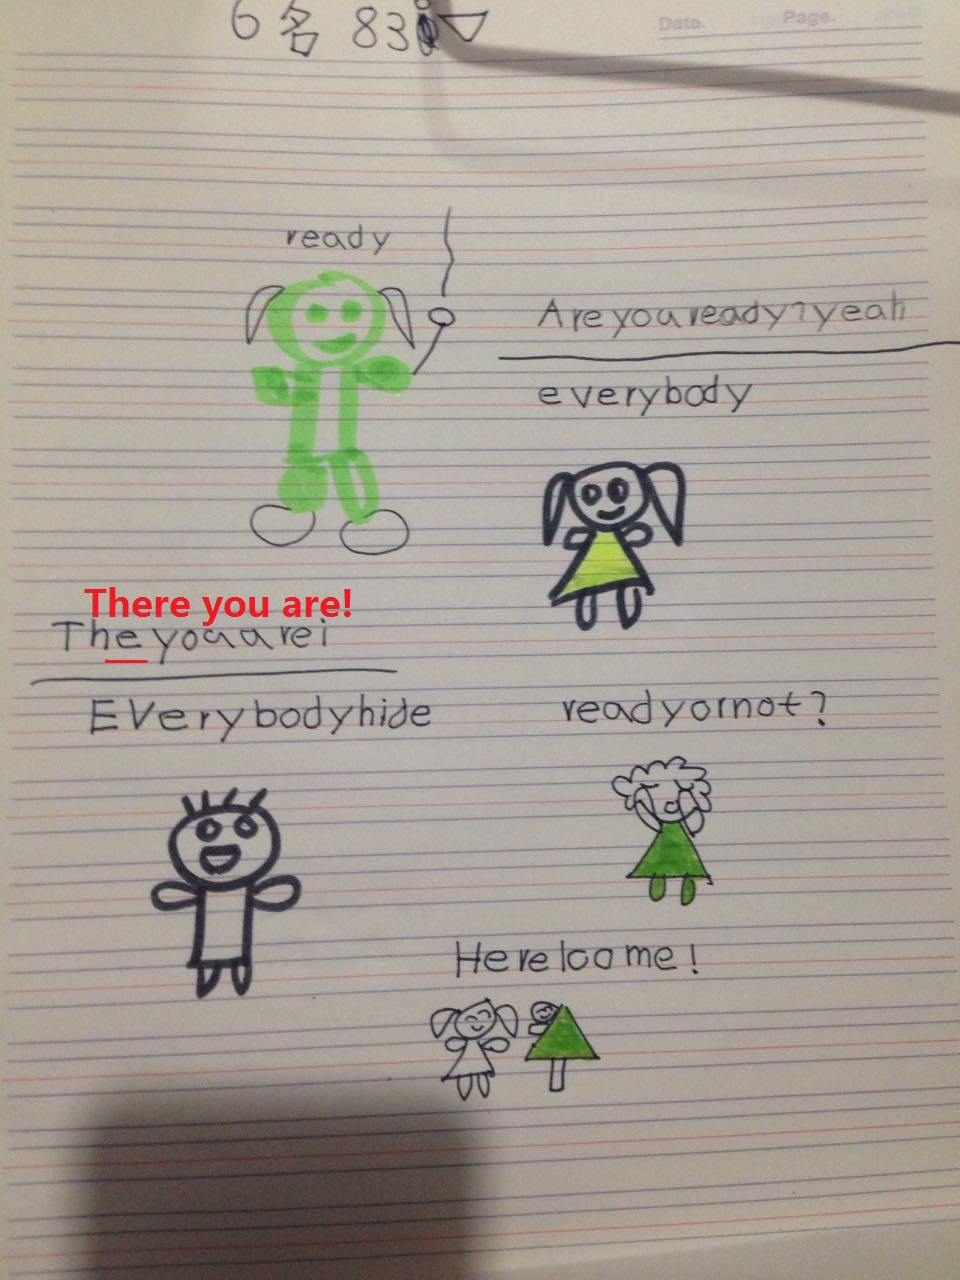 6名 83
Date.
Page.
ready
Areyouready?yeah
everybody
There you are!
Theyouarei
EVerybodyhide
readyornot?
HereIcome!